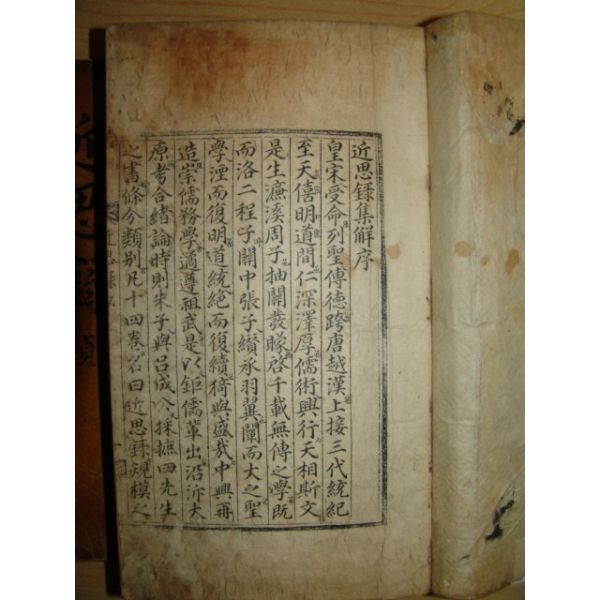 近思錄集解序
皇宋受命列聖傳德跨唐越漢上接三代統紀
至天僖明道間仁深澤厚儒術興行天相斯文
是生濂溪周子抽關發矇啓千載無傳之學既
而洛二程子關中張子纘承羽翼闡而大之聖
學湮而復明道統絶而復續猗與盛哉中興再
造崇儒務學遹遵祖武是以鉅儒輩出沿泝大
原考合緒論時則朱子與呂成公採摭四先生
之書條分類別凡十四卷名曰近思錄規模之
近思錄序
近思錄